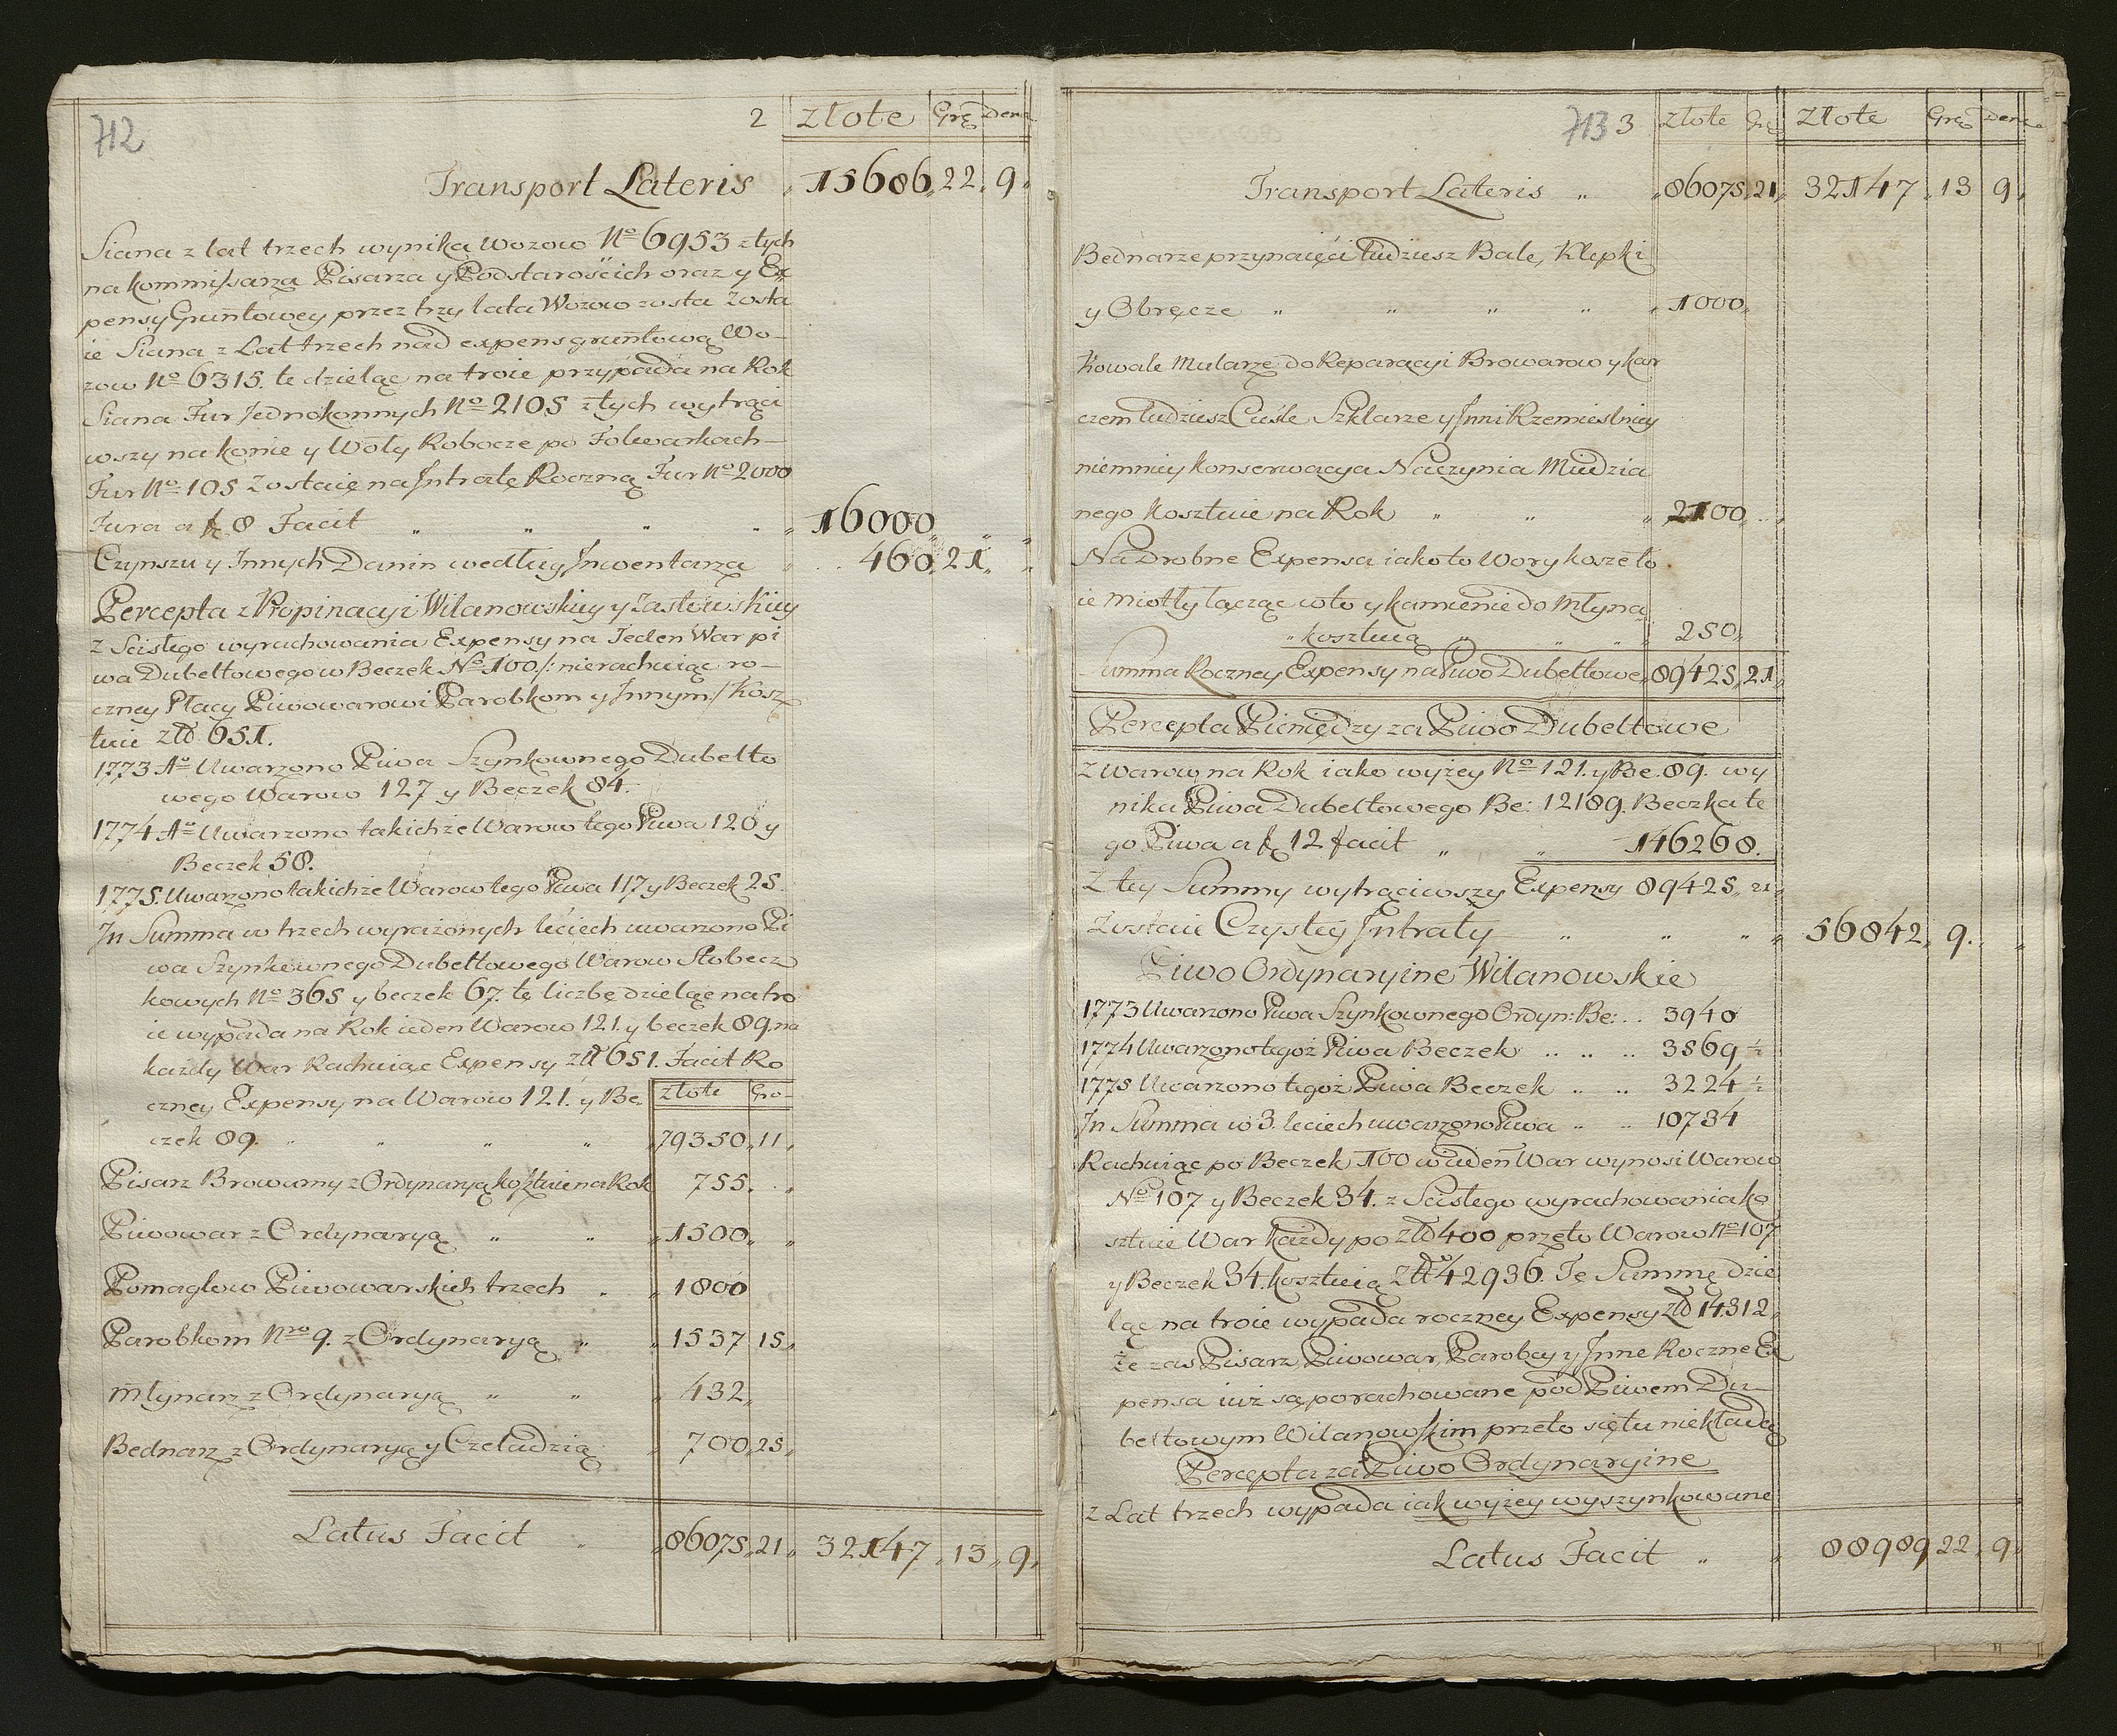 712
2 Złote Grę Dena
Transport Lateris „ 15686 „ 22 „ 9 „
Siana z lat trzech wynika Wozow No 6953 z tych
na kommissarza Pisarza y Podstarościch oraz y Ex
pensy Gruntowey przez trzy lata Wozow zosta Zosta
ie Siana z Lat trzech nad expens gruntową Wo-
zow No 6315. te dzieląc na troie przypada na Rok
Siana Fur Jednokonnych No 2105 z tych wytrąci
wszy na konie y Woły Robocze po Folwarkach-
Fur No 105 Zostaię na Jntratę Roczną Fur No 2000
Fura a f 8 Facit „ „ „ „ 16000 „ „
Czynszu y Innych Danin według Jnwentarza „ 460 „ 21 „
Percepta z Propinacyi Wilanowskiey y Zastewskiey
z Scisłego wyrachowania Expensy na Jeden War pi
wa Dubeltowego w Beczek No 100 /: nierachuiąc ro-
czney Płacy Piwowarowi Parobkom y Innym / Kosz
tuie złł 651.
1773 Ao Uwarzono Piwa Szynkownego Dubelto
wego Warow 127 y Beczek 84.
1774 Ao Uwarzono takichże Warow tego Piwa 120 y
Beczek 58.
1775. Uwarzono takichże Warow tego Piwa 117 y Beczek 25.
Jn Summa w trzech wyrażonych leciech uwarzono Pi
wa Szynkownego Dubeltowego Warow Stobecz
kowych No 365 y beczek 67. tę liczbę dzieląc na tro
ie wypada na Rok ieden Warow 121. y beczek 89. na
każdy War Rachuiąc Expensy złł 651. Facit Ro
czney Expensy na Warow 121. y Be- złote Gro-
czek 89. „ „ „ „ „ 79350 „ 11 „
Pisarz Browarny z Ordynaryą kosztuie na Rok 755. „
Piwowar z Ordynaryą „ „ „ 1500 „ „
Pomagłow Piwowarskich trzech „ „ 1800
Parobkom Nro 9. z Ordynaryą „ „ 1537 15 „
Młynarz z Ordynaryą „ „ „ 432 „
Bednarz z Ordynaryą y Czeladzią „ 700 „ 25 „
Latus Facit „ „ 86075 „ 21 „ 32147 „ 13 „ 9 „
713 3 złote Grę Złote Grę Dena
Transport Lateris „ „ 86075 „ 21 „ 32147 „ 13 9 „
Bednarze przynaięci tudziesz Bale, Klepki
y Obręcze „ „ „ „ „ 1000 „
Kowale Mularze do Reparacyi Browarow y kar
czem tudziesz Cieśle Szklarze y Jnni Rzemieslnicy
niemniey konserwacya Naczynia Miedzia
nego kosztuie na Rok „ „ „ 2100 „
Na Drobne Expensa iako to Wory kosze ło
ie Miotły łącząc w to y kamienie do Młyna
„ kosztuią „ „ „ „ 250 „
Summa Roczney Expensy na Piwo Dubeltowe „ 89425 „ 21 „
Percepta Pieniędzy za Piwo Dubeltowe
Z Warow na Rok iako wyżey No 121. y Be. 89. wy
nika Piwa Dubeltowego Be: 12189. Beczka te
go Piwa a f 12 facit „ „ 146268.
Z tey Summy wytrąciwszy Expensy 89425 „ 21 „
Zostaie Czystey Jntraty „ „ „ „ 56842 „ 9. „
Piwo Ordynaryine Wilanowskie
1773 Uwarzono Piwa Szynkownego Ordyn: Be: .. 3940
1774 Uwarzono tegoż Piwa Beczek .. .. .. 3569 ½
1775 Uwarzono tegoż Piwa Beczek .. .. 3224 ½
Jn Summa w 3. leciech uwarzono Piwa .. .. 10734
Rachuiąc po Beczek 100 w ieden War wynosi Warow
No 107 y Beczek 34. z Scisłego wyrachowania ko
sztuie War każdy po złł 400 przeto Warow No 107
y Beczek 34. kosztuią złł 42936. Tę Summę dzie
ląc na troie wypada roczney Expensy złł 14312 „
Że zas Pisarz, Piwowar, Parobcy y Jnne Roczne Ex
pensa iuż są porachowane pod Piwem Du-
beltowym Wilanowskim przeto się tu niekładą
Percepta za Piwo Ordynaryine
z Lat trzech wypada iak wyżey wyszynkowane
Latus Facit „ „ 88989 22 „ 9 „